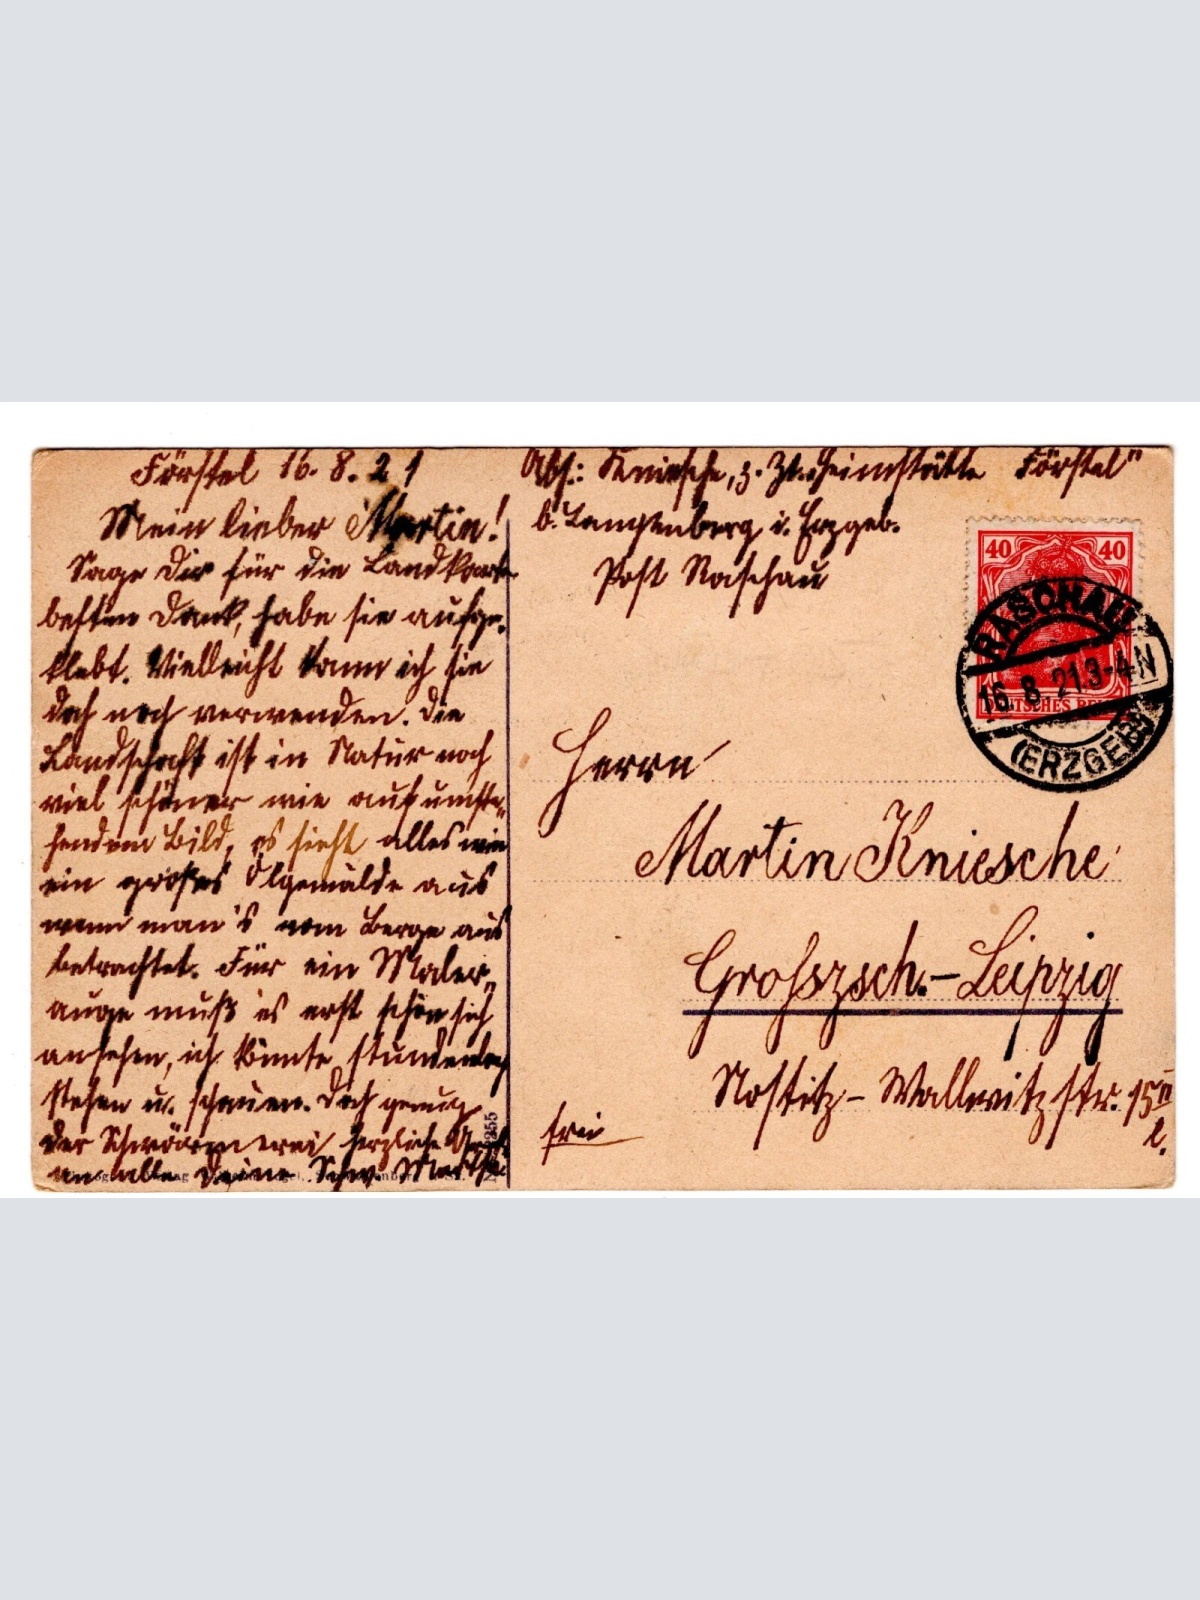 Förstel 16. 8. 21
Mein lieber Martin!
Sage Dir für die Landkarte
besten Dank, habe sie aufge-
klebt. Vielleicht kann ich sie
doch noch verwenden. Die
Landschaft ist in Natur noch
viel schöner wie auf umste-
hendem Bild, es sieht alles wie
ein großes Ölgemälde aus
wenn man's vom Berge aus
betrachtet. Für ein Maler-
auge muß es erst schön sich
ansehen, ich könnte stundenlang
stehen u. schauen. Doch genug
der Schwärmerei, herzliche
an alle Deine Schw. Martha
Abs: Kniesche, z. Zt. „Heimstätte Förstel"
b. Langenberg i. Erzgeb.
Post Raschau
40 40
DEUTSCHES REICH
RASCHAU
16.8.21.3-4N
(ERZGEB)
Herrn
Martin Kniesche
Groszsch.-Leipzig
Nostitz-Wallwitzstr. 15 II
l.
frei
255